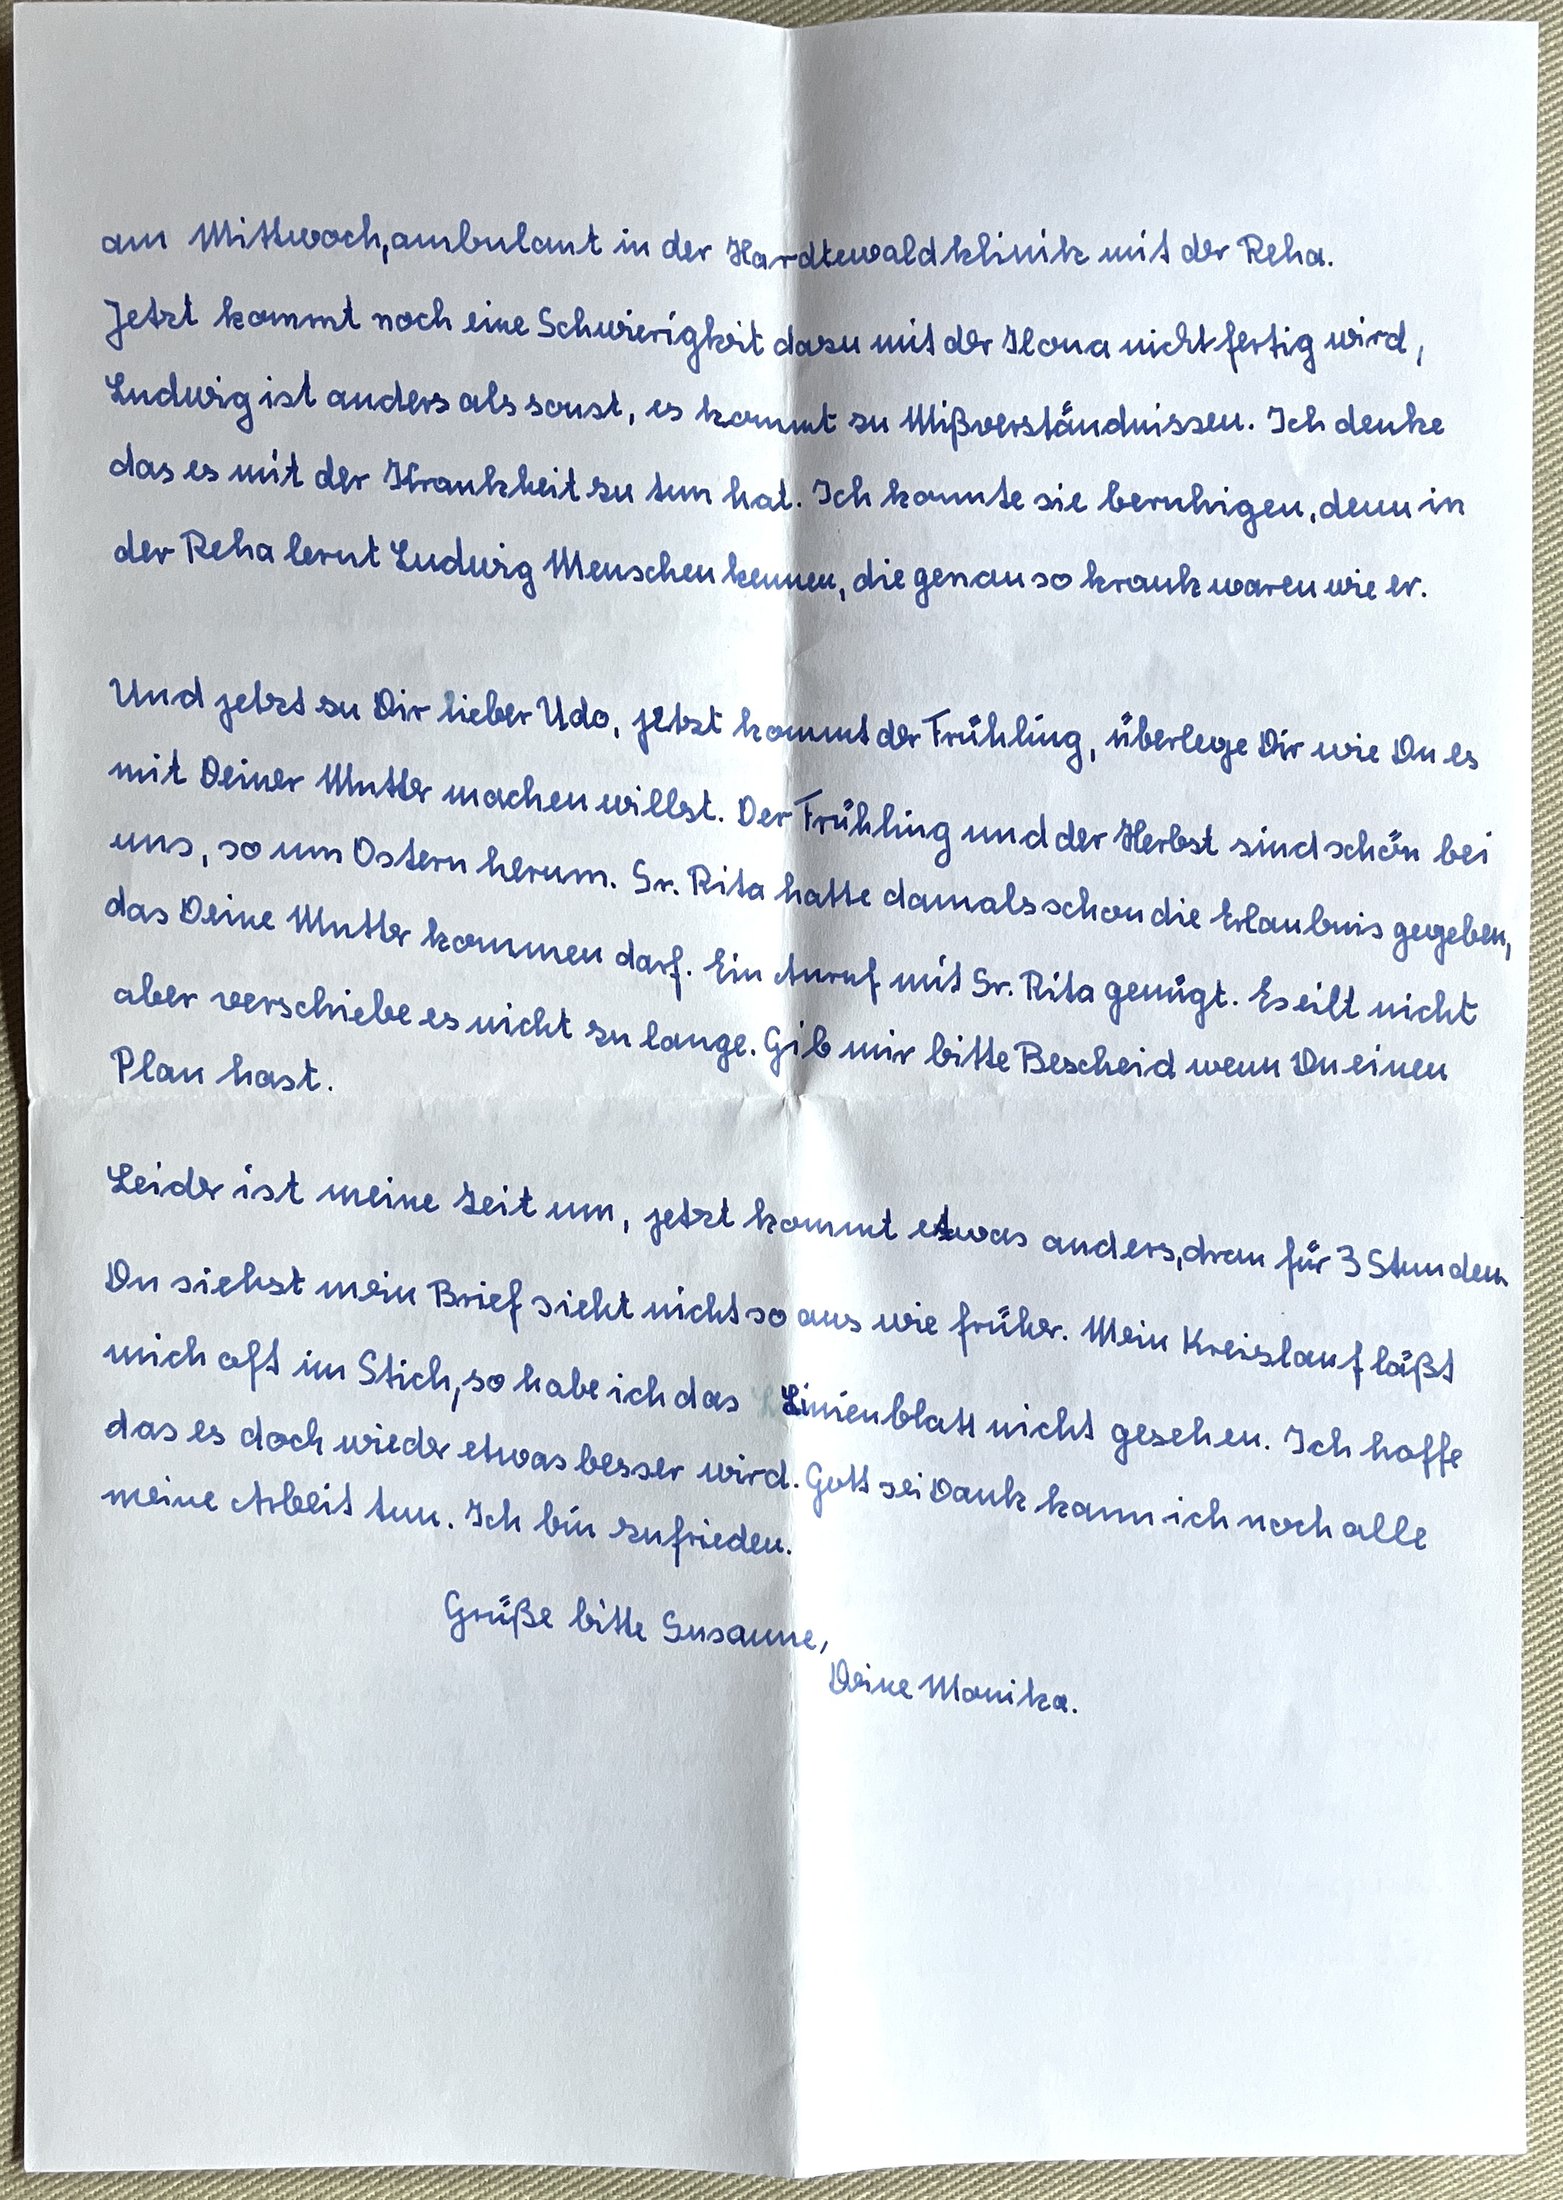 am Mittwoch, ambulant in der Hardtewaldklinik mit der Reha.
Jetzt kommt noch eine Schwierigkeit dazu mit der Ilona nicht fertig wird,
Ludwig ist anders als sonst, es kommt zu Mißverständnissen. Ich denke
das es mit der Krankheit zu tun hat. Ich konnte sie beruhigen, denn in
der Reha lernt Ludwig Menschen kennen, die genau so krank waren wie er.
Und jetzt zu Dir lieber Udo, jetzt kommt der Frühling, überlege Dir wie Du es
mit Deiner Mutter machen willst. Der Frühling und der Herbst sind schön bei
uns, so um Ostern herum. Sr. Rita hatte damals schon die Erlaubnis gegeben,
das Deine Mutter kommen darf. Ein Anruf mit Sr. Rita genügt. Es eilt nicht
aber verschiebe es nicht zu lange. Gib mir bitte Bescheid wenn Du einen
Plan hast.
Leider ist meine Zeit um, jetzt kommt etwas anders, dran für 3 Stunden.
Du siehst mein Brief sieht nicht so aus wie früher. Mein Kreislauf läßt
mich oft im Stich, so habe ich das Linienblatt nicht gesehen. Ich hoffe
das es doch wieder etwas besser wird. Gott sei Dank kann ich noch alle
meine Arbeit tun. Ich bin zufrieden.
Grüße bitte Susanne,
Deine Monika.